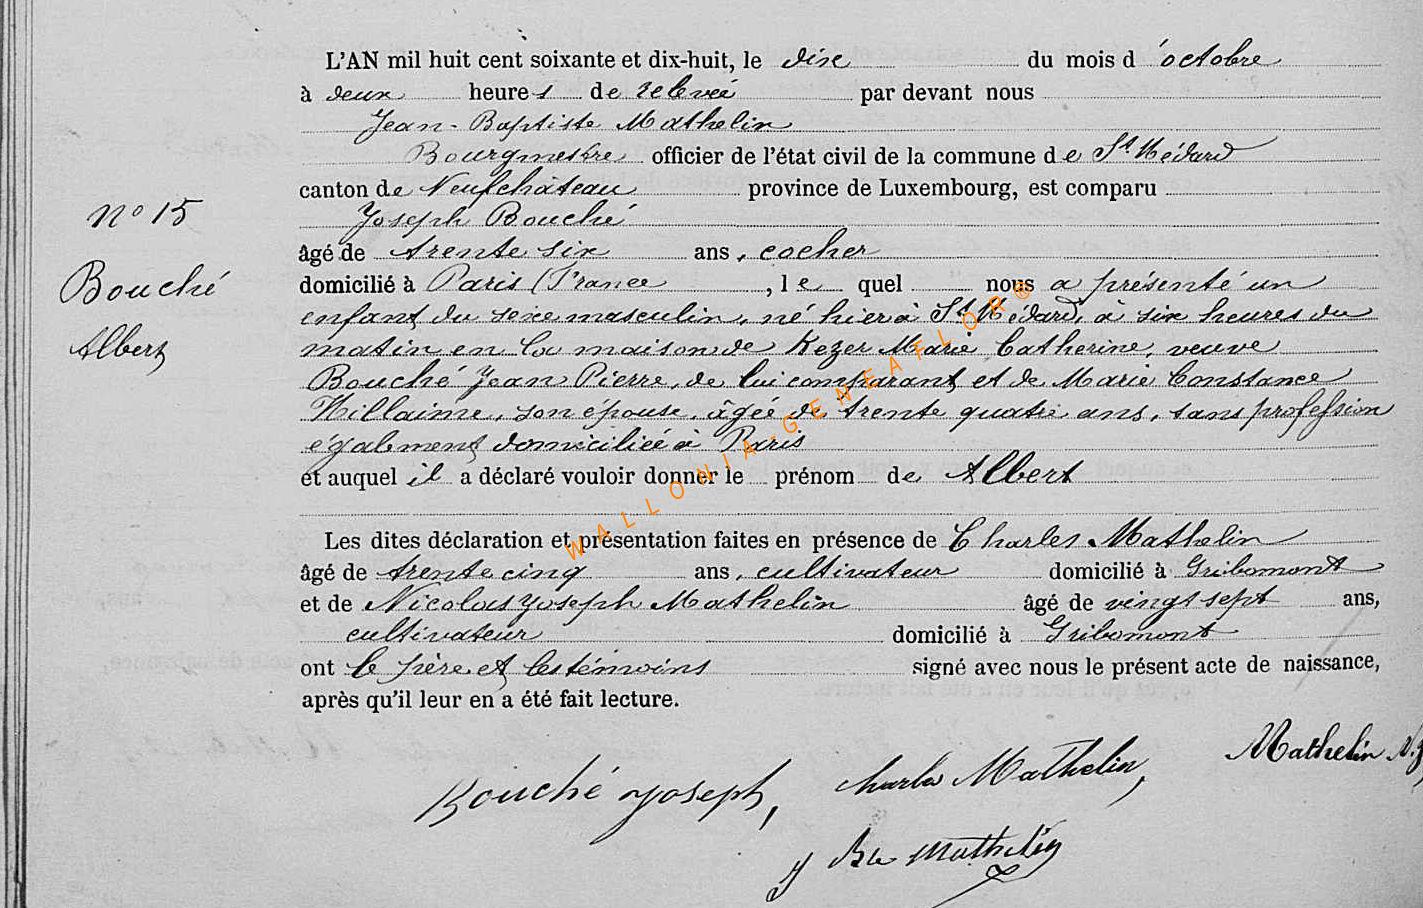 L'AN mil huit cent soixante et dix-huit, le dix du mois d'octobre
à deux heures de relevée par devant nous
Jean-Baptiste Mathelin
Bourgmestre officier de l'état civil de la commune de St Médard
canton de Neufchâteau province de Luxembourg, est comparu
Joseph Bouché
âgé de trente six ans, cocher
domicilié à Paris (France, le quel nous a présenté un
enfant du sexe masculin, né hier à St Médard, à six heures du
matin en la maison de Kezer Marie Catherine, veuve
Bouché Jean Pierre, de lui comparant et de Marie Constance
Willaime, son épouse, âgée de trente quatre ans, sans profession
également domiciliée à Paris
et auquel il a déclaré vouloir donner le prénom de Albert
Les dites déclaration et présentation faites en présence de Charles Mathelin
âgé de trente cinq ans, cultivateur domicilié à Gribomont
et de Nicolas Joseph Mathelin âgé de vingt sept ans,
cultivateur domicilié à Gribomont
ont le père et les témoins signé avec nous le présent acte de naissance,
après qu'il leur en a été fait lecture.
no 15
Bouché
Albert
Bouché Joseph, Charles Mathelin, Mathelin N.J
J Bte Mathelin
WALLONIA-GENEAFLOR®